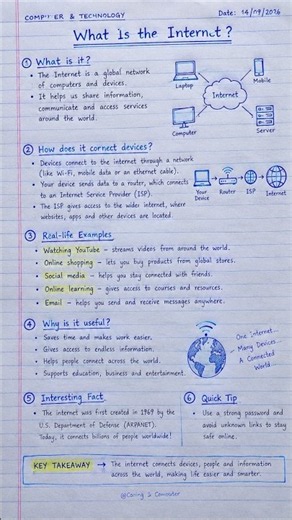 COMPUTER & TECHNOLOGY
Date: 14/09/2026
What is the Internet?
① What is it?
• The Internet is a global network
of computers and devices.
• It helps us share information,
communicate and access services
around the world.
Laptop
Mobile
Internet
Computer
Server
② How does it connect devices?
• Devices connect to the internet through a network
(like Wi-Fi, mobile data or an ethernet cable).
• Your device sends data to a router, which connects
to an Internet Service Provider (ISP).
• The ISP gives access to the wider internet, where
websites, apps and other devices are located.
Your
Device
Router
ISP
Internet
③ Real-life Examples
• Watching YouTube – streams videos from around the world.
• Online shopping – lets you buy products from global stores.
• Social media – helps you stay connected with friends.
• Online learning – gives access to courses and resources.
• Email – helps you send and receive messages anywhere.
④ Why is it useful?
• Saves time and makes work easier.
• Gives access to endless information.
• Helps people connect across the world.
• Supports education, business and entertainment.
One Internet
Many Devices,
A Connected
World
⑤ Interesting Fact
• The internet was first created in 1969 by the
U.S. Department of Defense (ARPANET).
Today, it connects billions of people worldwide!
⑥ Quick Tip
• Use a strong password and
avoid unknown links to stay
safe online.
KEY TAKEAWAY → The internet connects devices, people and information
across the world, making life easier and smarter.